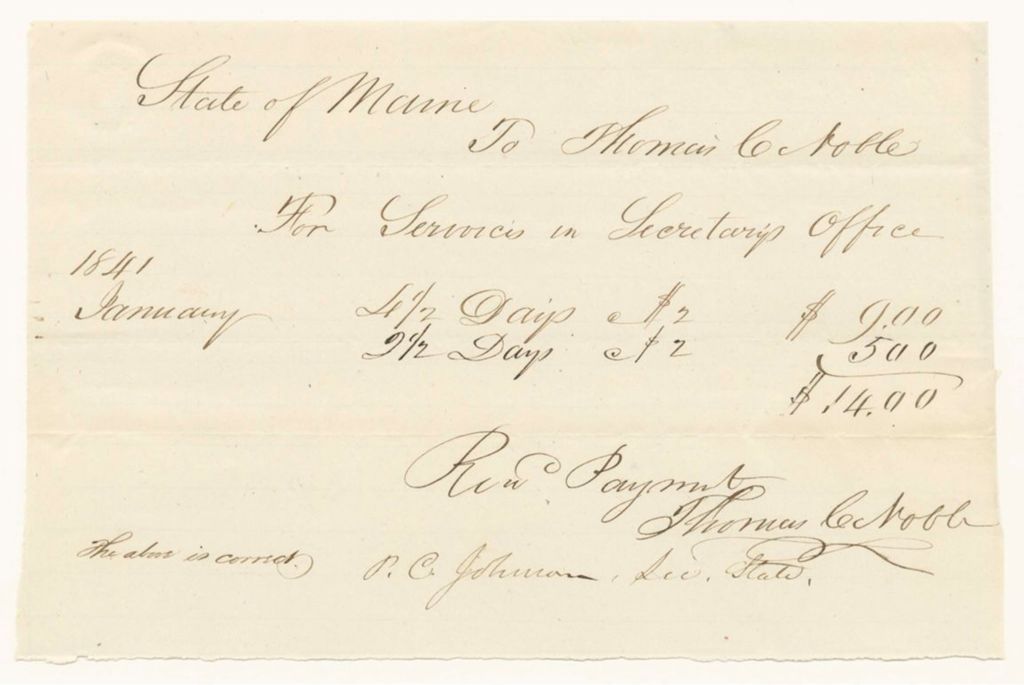 State of Maine
To Thomas C Noble
For Services in Secretarys Office
1841
January 4 1/2 Days @ $2 $ 9.00
2 1/2 Days @ $2 5 00
$ 14.00
Recd Paymnt
Thomas C Noble
The above is correct. P. C. Johnson, Sec. State.